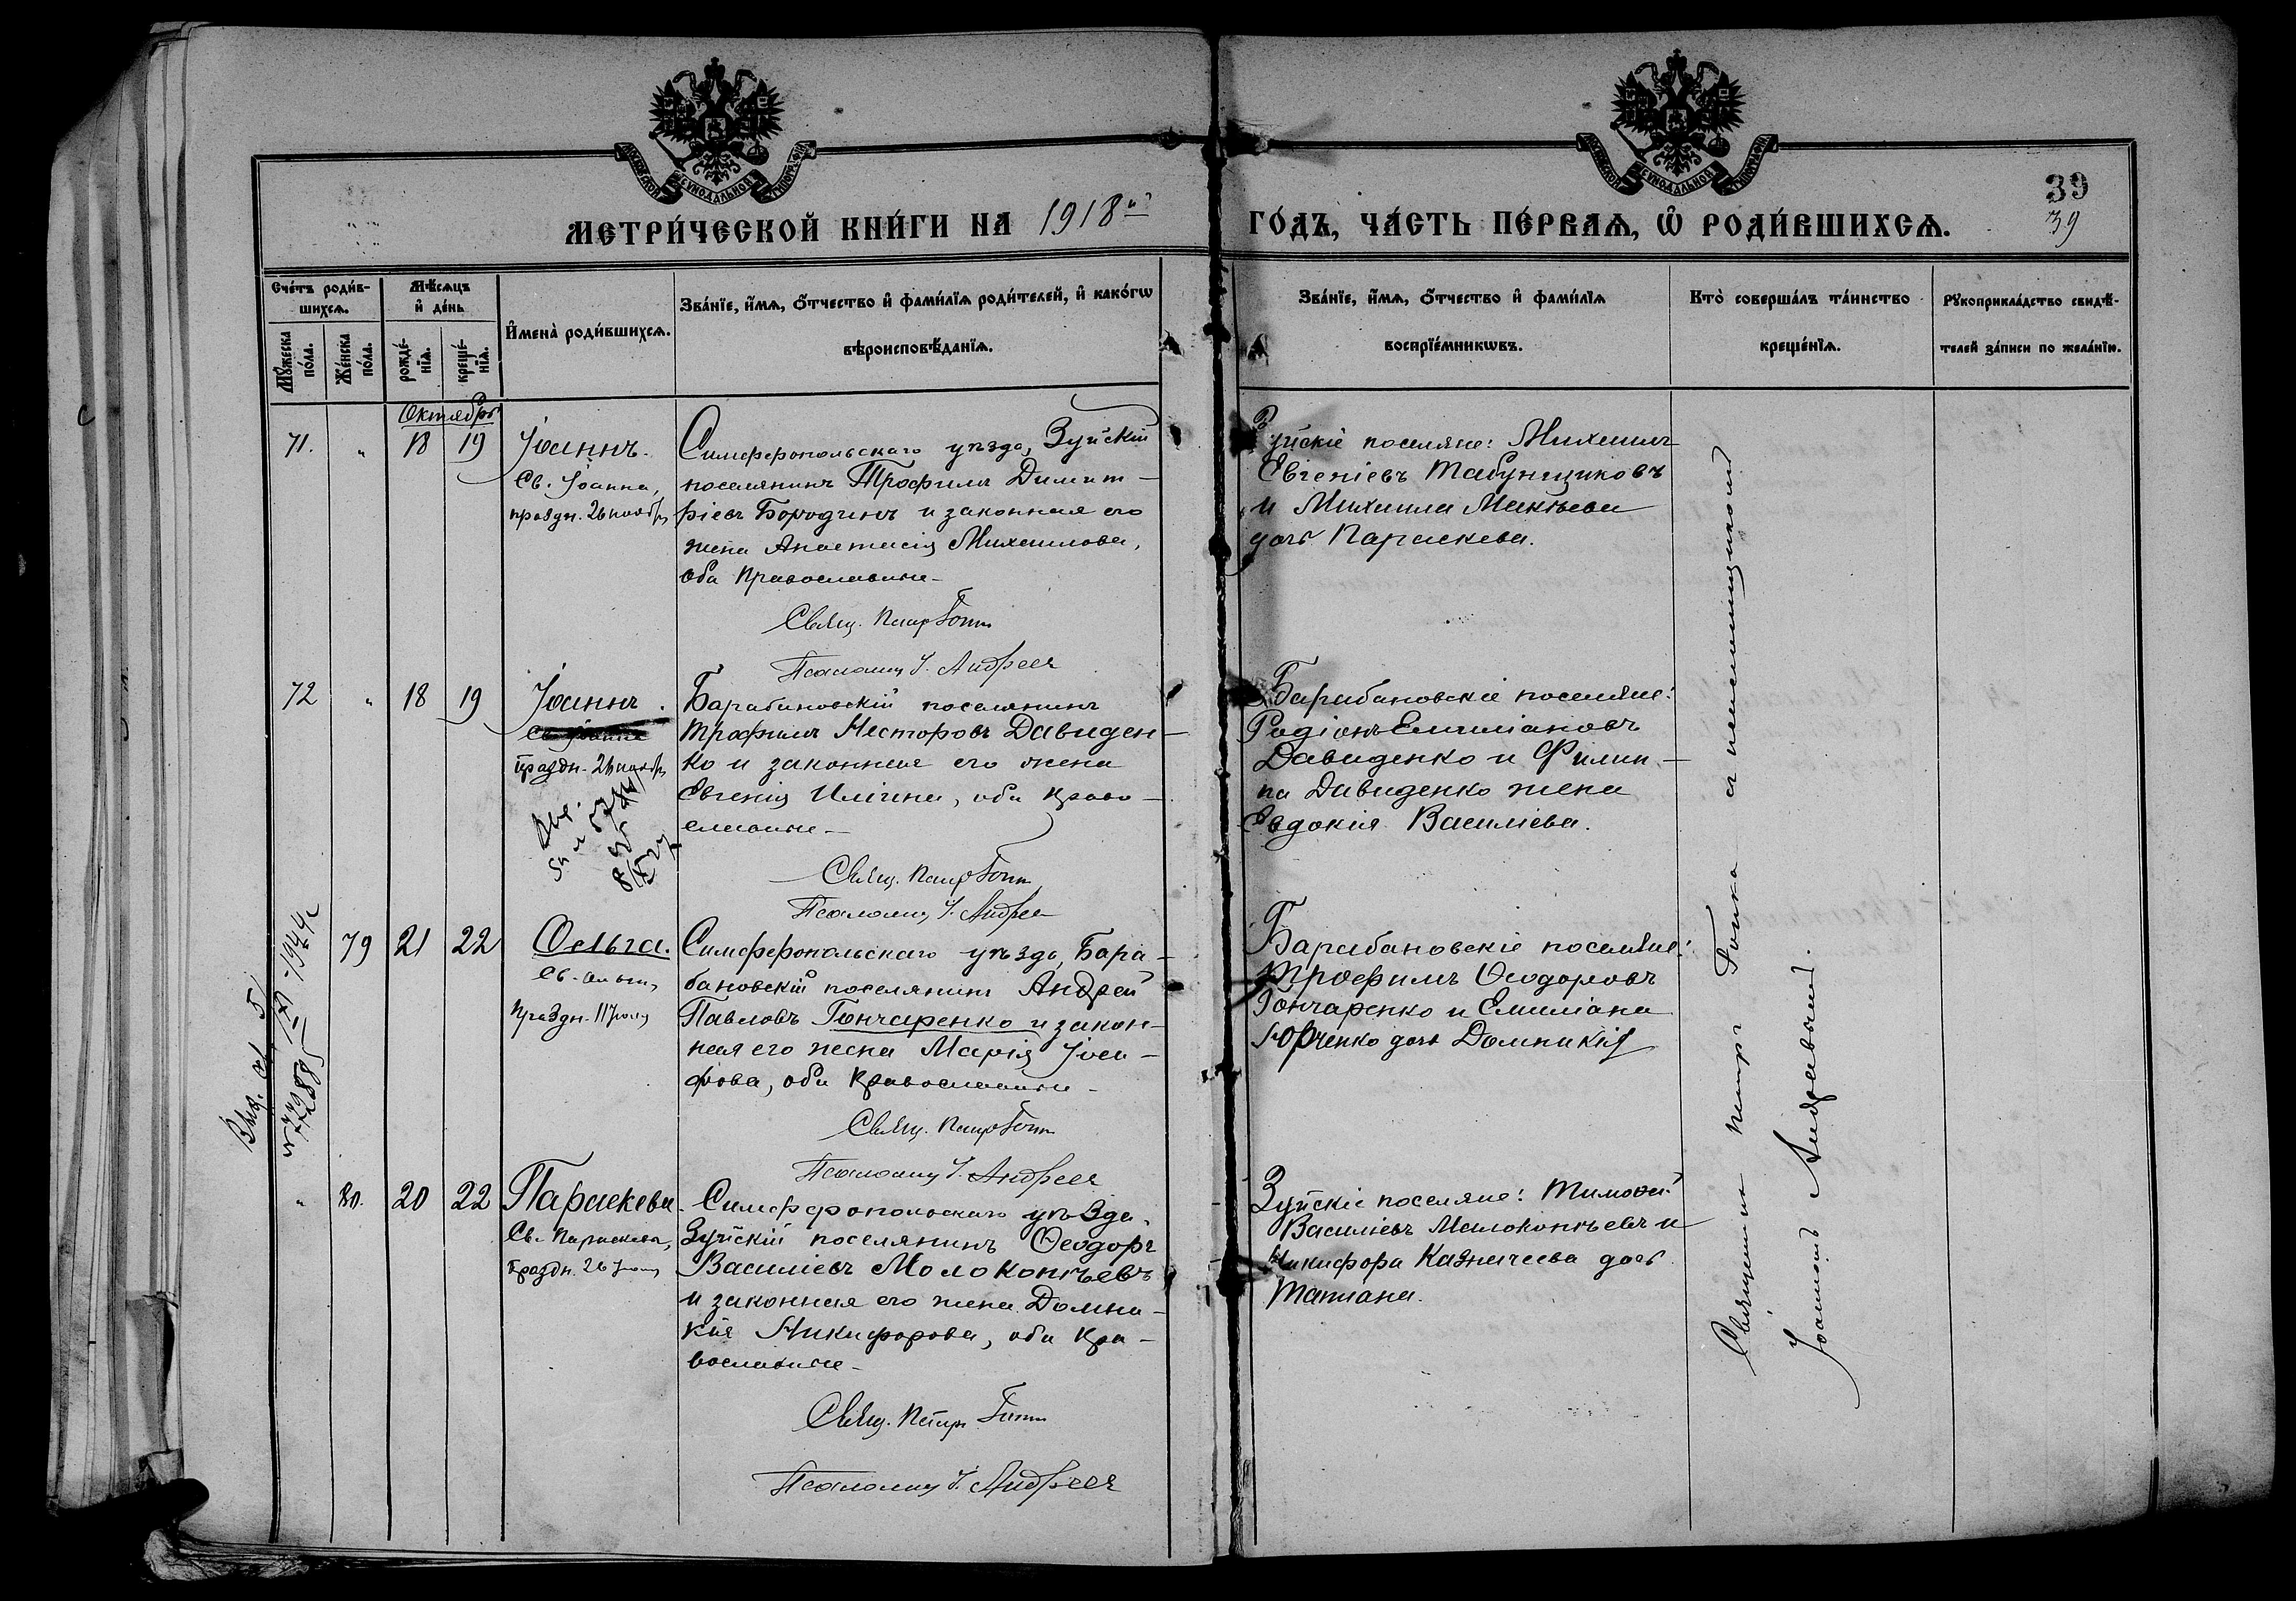 МОСКОВСКОЙ СѴНОДАЛЬНОЙ ТИПОГРАФІИ
МОСКОВСКОЙ СѴНОДАЛЬНОЙ ТИПОГРАФІИ
39
39
МЕТРИ́ЧЕСКОЙ КНИ́ГИ НА 1918й
ГО́ДЪ, ЧА́СТЬ ПЕ́РВАѦ, Ѡ҆ РОДИ́ВШИХСѦ.
Сче́тъ роди́в-
шихсѧ.
Мꙋ́жеска по́ла.
Же́нска по́ла.
Мѣ́сѧцъ
и҆ де́нь
рожде́-нїѧ.
креще́-нїѧ.
И҆мена̀ роди́вшихсѧ.
Зва́нїе, и҆́мѧ, ѻ҆́тчество и҆ фами́лїѧ роди́телей, и҆ како́гѡ
вѣроисповѣ́данїѧ.
Зва́нїе, и҆́мѧ, ѻ҆́тчество и҆ фами́лїѧ
воспрїе́мникѡвъ.
Кто̀ соверша́лъ та́инство
креще́нїѧ.
Рꙋкоприкла́дство свидѣ́-
телей за́писи по жела́нїю.
Октябрь
71. " 18 19 Іоаннъ.
Св. Іоанна,
праздн. 26 ноябр
Симферопольскаго уѣзда, Зуйскій
поселянинъ Трофимъ Димит-
ріевъ Бородинъ и законная его
жена Анастасія Михаилова,
оба православные
Свящ. Петръ
Псаломщ І. Андреев
Зуйскіе поселяне: Михаилъ
Евгеніевъ Табунщиковъ
и Михаила Матвѣева
дочь Параскева.
72 " 18 19 Іоаннъ.
праздн. 26 ноябр
Барабановскій поселянинъ
Трофимъ Несторовъ Давиден-
ко и законная его жена
Евгенія Ильина, оба право-
славные
Свящ. Петръ
Псаломщ І. Андреев
Барабановскіе поселяне:
Родіонъ Емиліановъ
Давиденко и Филип-
па Давиденко жена
Евдокія Василіева.
79 21 22 Ольга.
Св. Ольги,
праздн. 11 Іюля
Симферопольскаго уѣзда, Бара-
бановскій поселянинъ Андрей
Павловъ Гончаренко и закон-
ная его жена Марія Іоси-
фова, оба православные
Свящ. Петръ
Псаломщ І. Андреев
Барабановскіе поселяне:
Трофимъ Ѳеодоровъ
Гончаренко и Емиліана
Юрченко дочь Домникія
1944г
" 80. 20 22 Параскева
Св. Параскева,
праздн. 26 Іюля
Симферопольскаго уѣзда,
Зуйскій поселянинъ Ѳеодоръ
Василіевъ Молоконѣевъ
и законная его жена Домни-
кія Никифорова, оба пра-
вославные
Свящ. Петръ
Псаломщ І. Андреев
Зуйскіе поселяне: Тимоѳей
Василіевъ Молоконѣевъ и
Никифора Казначеева дочь
Татіана.
Священникъ Петръ съ псаломщикомъ
Іоанномъ